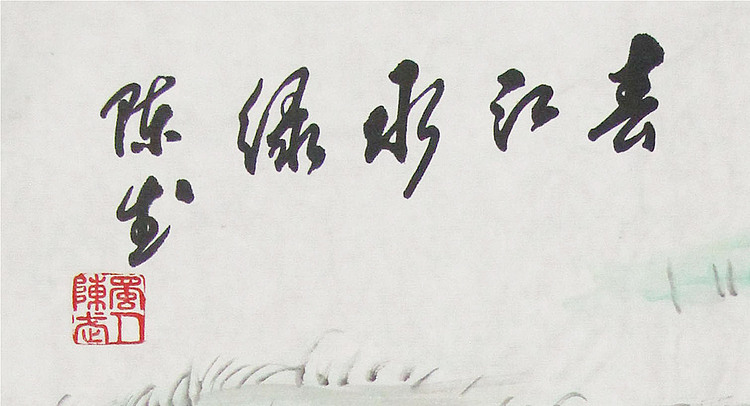 春江水绿
陈武
蜀人
陳武